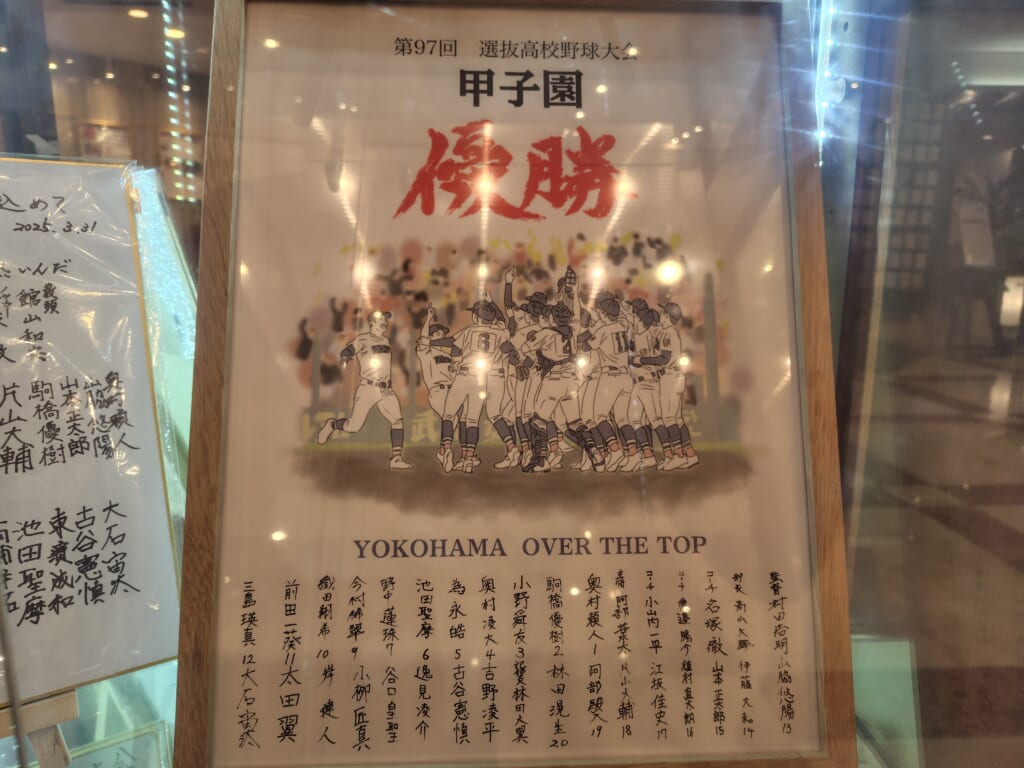 第97回 選抜高校野球大会
甲子園
優勝
YOKOHAMA OVER THE TOP
監督 村田浩明 山脇悠陽 13
部長 伊藤大和 14
コーチ 名塚徹 山本正太郎 15
コーチ 植村真大朗 16
コーチ 小山内一平 江坂佳史 17
主将 阿部葉太 8 片山大輔 18
奥村頼人 1 阿部駿大 19
駒橋優樹 2 林田滉生 20
小野舜友 3
奥村凌大 4 吉野凌平
為永皓 5 古谷憲慎
池田聖摩 6 逸見凌介
野中蓮珠 7 谷口皇聖
今村稀翠 9 小柳匠真
織田翔希 10 健人
前田一葵 11 太田翼
三島瑛真 12 大石宙汰
込めて
2025.3.31
館山和央
山脇悠陽
山本正太郎
駒橋優樹
片山大輔
大石宙汰
古谷憲慎
池田聖摩